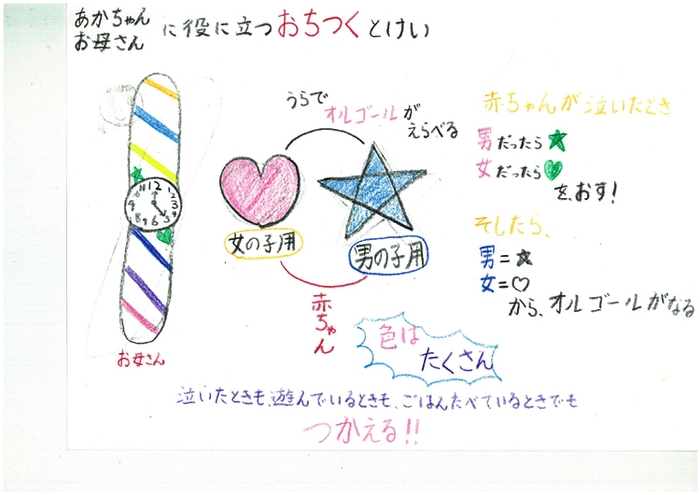 あかちゃん
お母さん
に役に立つおちつくとけい
うらで
オルゴールが
えらべる
赤ちゃんが泣いたとき
男だったら★
女だったら♥
を、おす!
そしたら、
男=★
女=♡
から、オルゴールがなる
11 12 1 2 3 4 5 6 7 8 9
女の子用
男の子用
赤ちゃん
お母さん
色は
たくさん
泣いたときも、遊んでいるときも、ごはんたべているときでも
つかえる!!